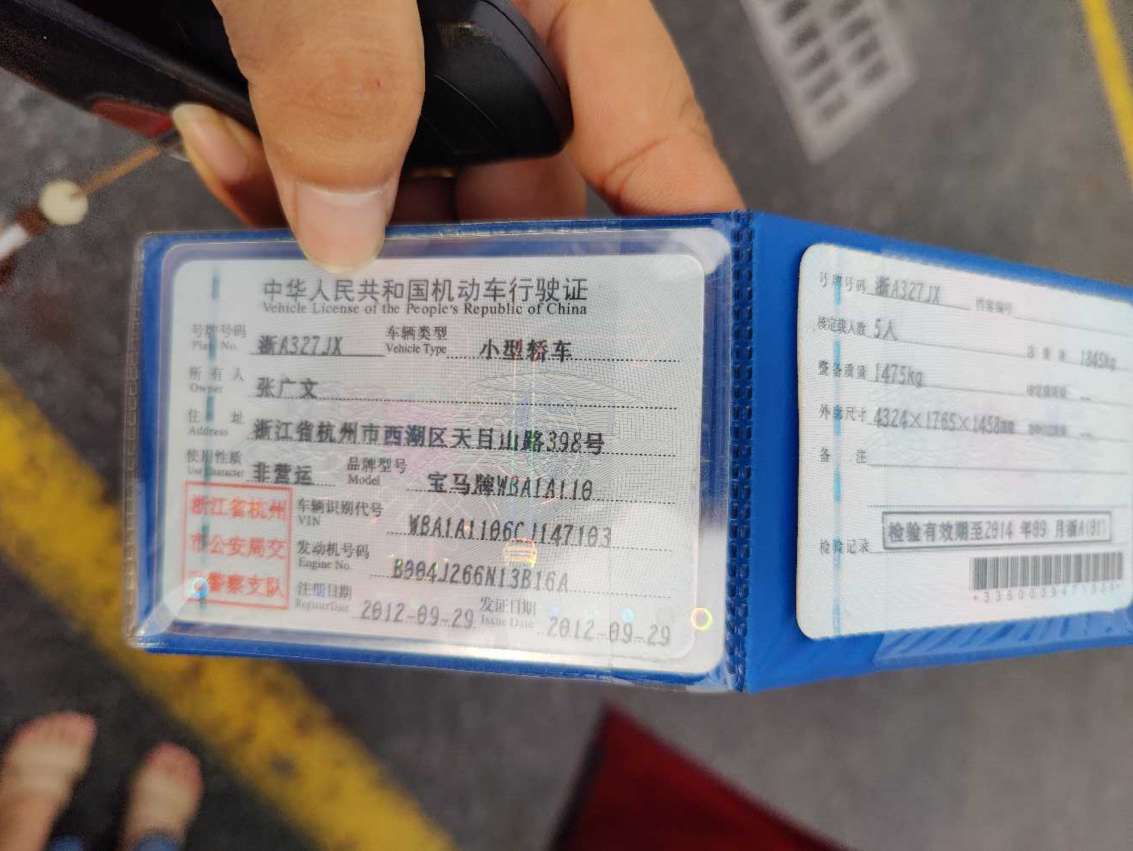 中华人民共和国机动车行驶证
Vehicle License of the People's Republic of China
号牌号码 浙A327JX 车辆类型 小型轿车
Plate No. Vehicle Type
所有人 张广文
Owner
住址 浙江省杭州市西湖区天目山路398号
Address
使用性质 非营运 品牌型号 宝马牌WBA1A110
Use Character Model
浙江省杭州
市公安局交
警察支队
车辆识别代号 WBA1A1106CJ147103
VIN
发动机号码 B904J266N13B16A
Engine No.
注册日期 2012-09-29 发证日期 2012-09-29
Register Date Issue Date
号牌号码 浙A327JX 档案编号
核定载人数 5人 总质量 1845kg
整备质量 1475kg 核定载质量 --
外廓尺寸 4324×1765×1458mm --
备注
检验记录 检验有效期至2014年09月浙A(01)